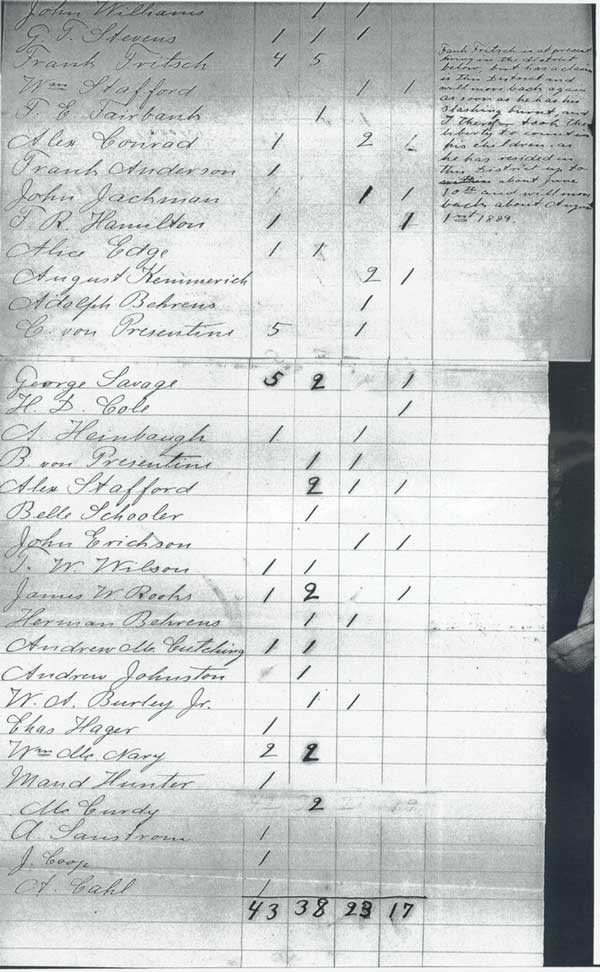 John Williams 1 1
G. T. Stevens 1 1 1
Frank Fritsch 4 5
Wm Stafford 1 1
T. E. Fairbank 1
Alex Conrad 1 2 1
Frank Anderson 1
John Jachman 1 1
T. R. Hamilton 1 1
Alice Edge 1 1
August Kemmerich 2 1
Adolph Behrens 1
C. von Presentine 5 1
Frank Fritsch is at present
living in the district
below, but has a claim
in this District and
will move back again
as soon as he has his
slashing burnt, and
I therefor took the
liberty to count in
his children, as
he has resided in
this District up to
about June
10th and will move
back about August
1st 1899.
George Savage 5 2 1
H. D. Cole 1
A. Heinbaugh 1 1
B. von Presentine 1 1
Alex Stafford 2 1 1
Belle Schooler 1
John Erichson 1 1
T. W. Wilson 1 1
James W Rooks 1 2 1
Herman Behrens 1 1
Andrew Mc Cutching 1 1
Andrew Johnston 1
W. A. Burley Jr. 1 1
Chas Hager 1
Wm Mc Nary 2 2
Maud Hunter 1
Mc Curdy 2
A. Sanstrom 1
J. Coop 1
A. Cahl 1
43 38 23 17